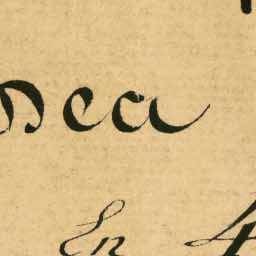 sea
En 4